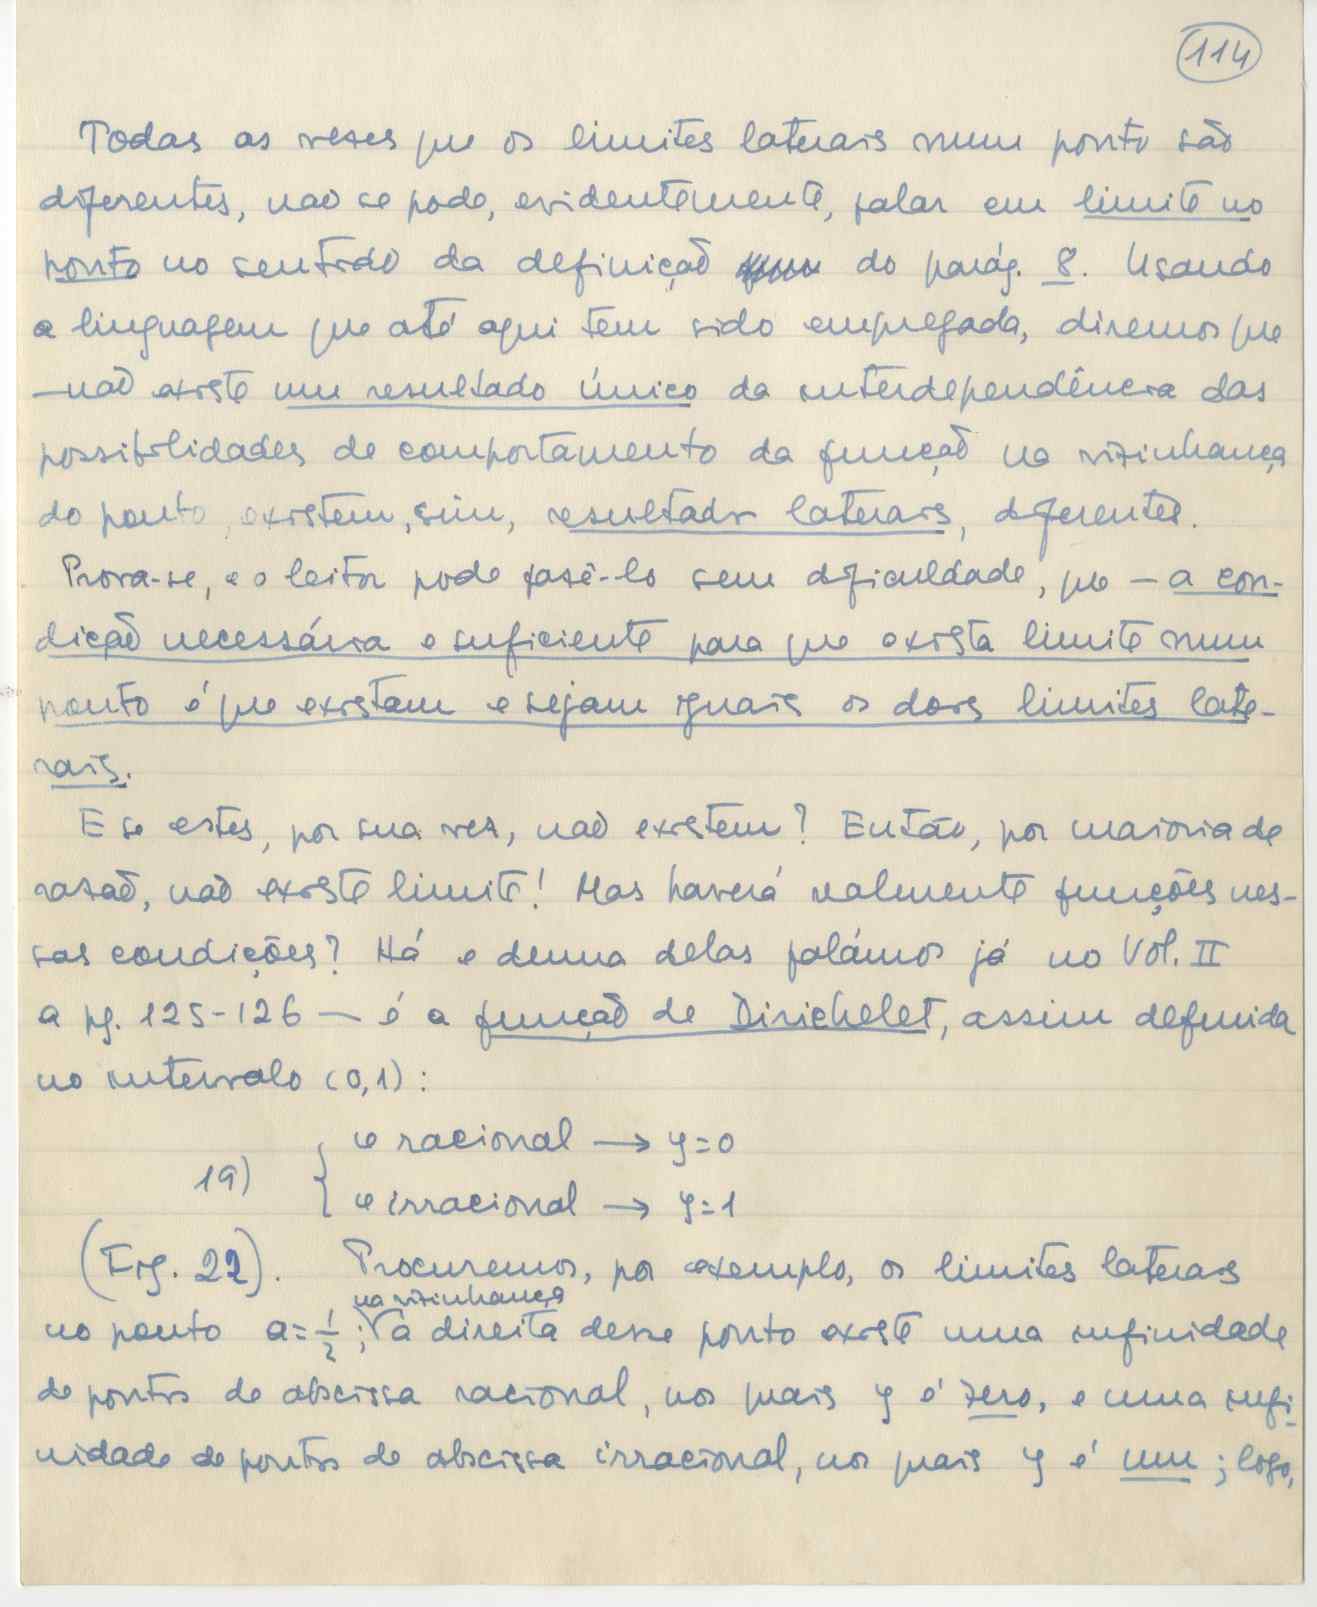 114
Todas as vezes que os limites laterais num ponto são
diferentes, não se pode, evidentemente, falar em limite no
ponto no sentido da definição do parág. 8. Usando
a linguagem que até aqui tem sido empregada, diremos que
— não existe um resultado único da interdependência das
possibilidades de comportamento da função na vizinhança
do ponto, existem, sim, resultados laterais, diferentes.
Prova-se, e o leitor pode fazê-lo sem dificuldade, que — a con-
dição necessária e suficiente para que exista limite num
ponto é que existam e sejam iguais os dois limites late-
rais.
E se estes, por sua vez, não existem? Então, por maioria de
razão, não existe limite! Mas haverá realmente funções nes-
sas condições? Há e duma delas falámos já no Vol. II
a pg. 125-126 — é a função de Dirichelet, assim definida
no intervalo (0,1):
x racional → y=0
19) {
x irracional → y=1
(Fig. 22). Procuremos, por exemplo, os limites laterais
na vizinhança
no ponto a=1/2; V à direita desse ponto existe uma infinidade
de pontos de abscissa racional, nos quais y é zero, e uma infi-
nidade de pontos de abscissa irracional, nos quais y é um; logo,